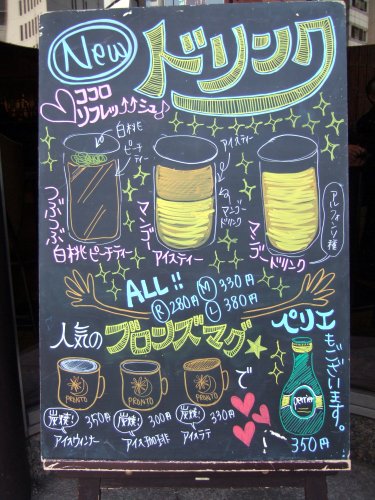 New ドリンク
ココロ
リフレッシュ♪
白桃
ピーチ
ティー
つぶつぶ
白桃ピーチティー
アイスティー
マンゴー
ドリンク
マンゴー
アイスティー
アルフォンソ種
マンゴードリンク
ALL!!
R 280円 M 330円
L 380円
人気の
ブロンズマグ★
で
PRONTO
PRONTO
PRONTO
炭焼! 350円
アイスウィンナー
炭焼! 300円
アイス珈琲
炭焼! 330円
アイスラテ
ペリエ
もございます。
perrier
350円